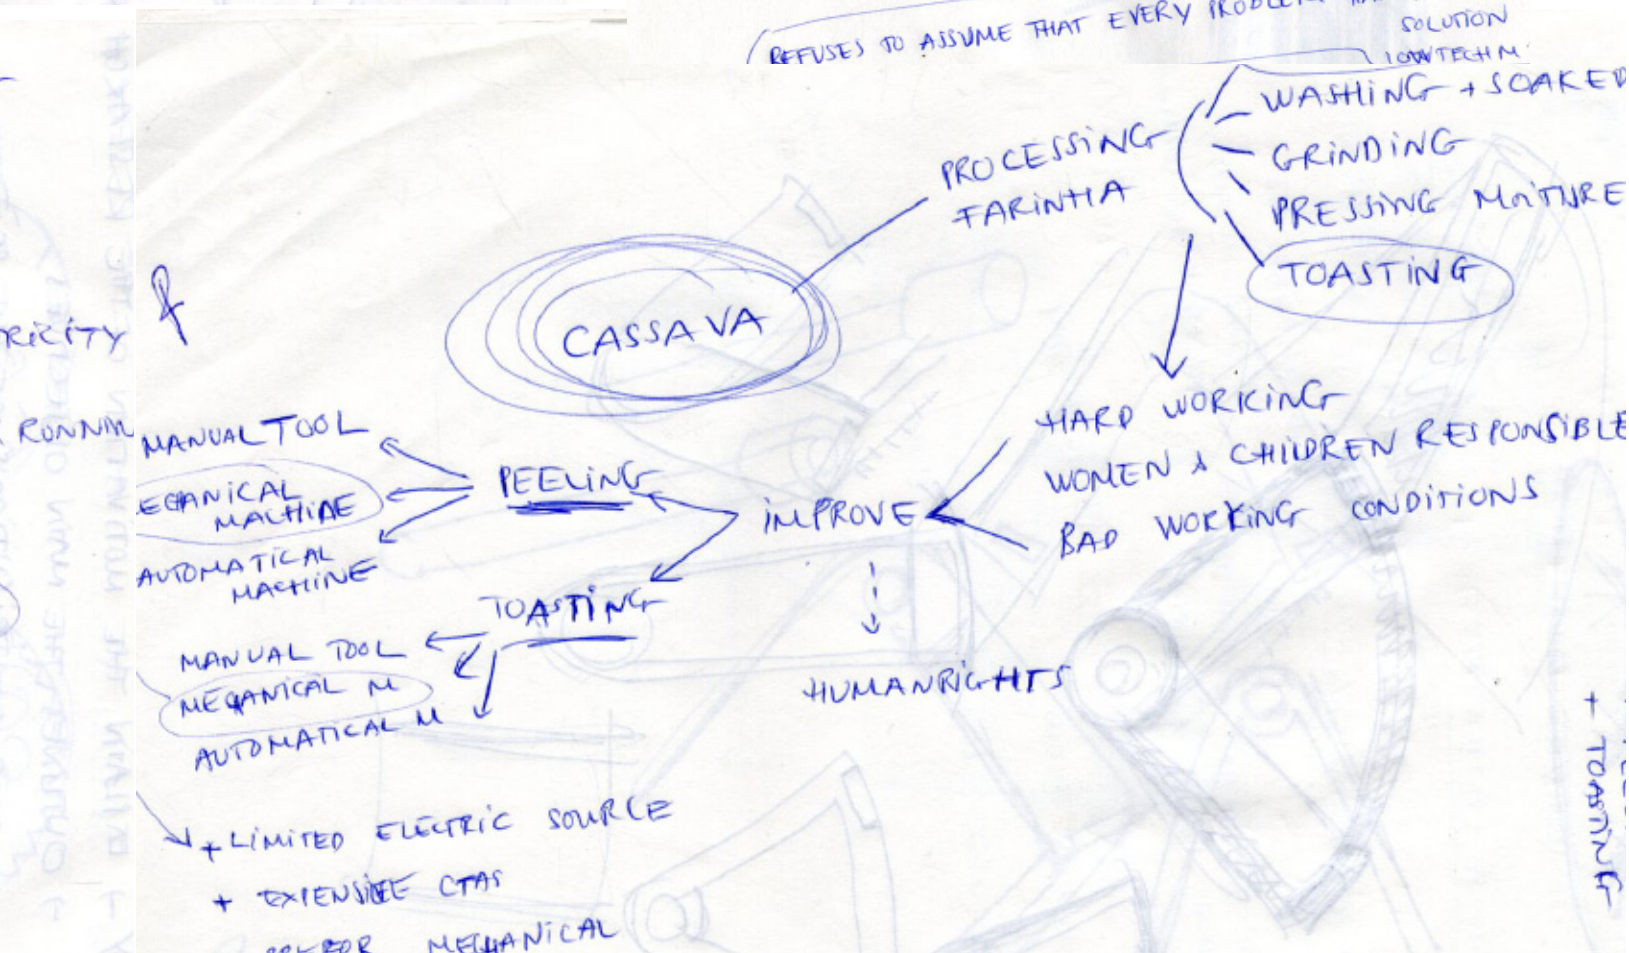 REFUSES TO ASSUME THAT EVERY
SOLUTION
LOWTECH M
WASHING + SOAKED
GRINDING
PRESSING MOITURE
TOASTING
PROCESSING
FARINHA
CASSAVA
HARD WORKING
WOMEN & CHILDREN RESPONSIBLE
BAD WORKING CONDITIONS
IMPROVE
HUMANRIGHTS
PEELING
MANUAL TOOL
ECHANICAL
MACHINE
AUTOMATICAL
MACHINE
TOASTING
MANUAL TOOL
MECHANICAL M
AUTOMATICAL M
+ LIMITED ELECTRIC SOURCE
+ EXPENSIVE
MECHANICAL
RICITY
+ TOASTING